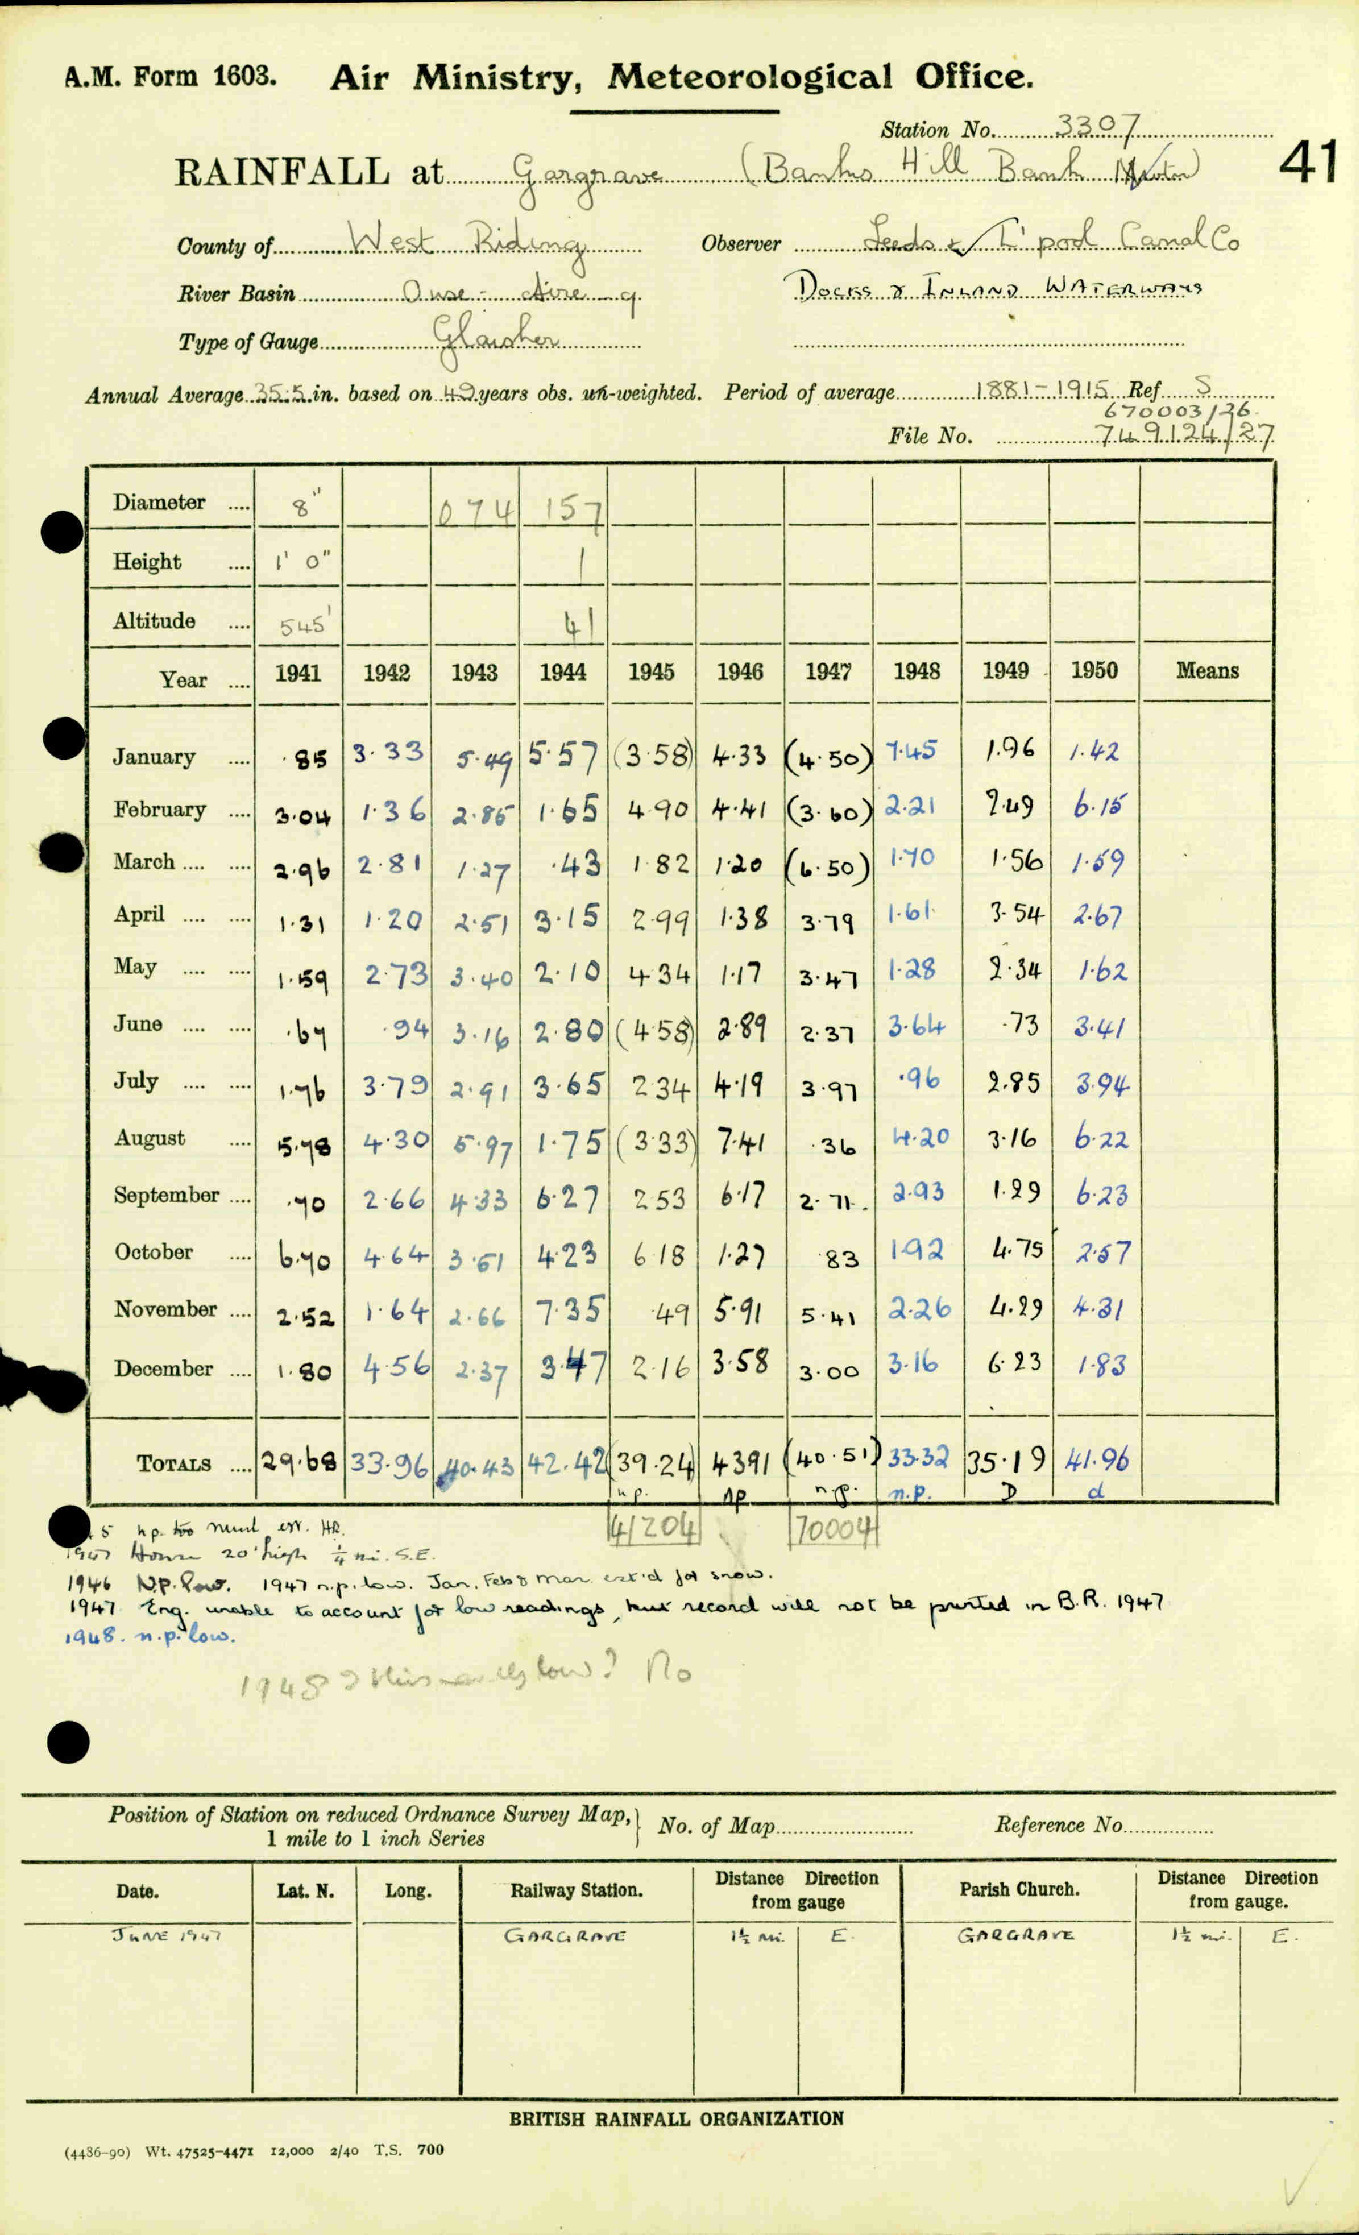 A.M. Form 1603. Air Ministry, Meteorological Office.
Station No. 3307
41
RAINFALL at Gargrave (Banks Hill Bank Newton)
County of West Riding Observer Leeds & L'pool Canal Co
River Basin Ouse - Aire - g. DOCKS & INLAND WATERWAYS
Type of Gauge Glaisher
Annual Average 35.5 in. based on 49 years obs. un-weighted. Period of average 1881-1915 Ref S
670003/26
File No. 749124/27
Diameter .... 8" 074 157
Height .... 1' 0" 1
Altitude .... 545' 41
Year .... 1941 1942 1943 1944 1945 1946 1947 1948 1949 1950 Means
January .... .85 3.33 5.49 5.57 (3.58) 4.33 (4.50) 7.45 1.96 1.42
February .... 3.04 1.36 2.85 1.65 4.90 4.41 (3.60) 2.21 2.49 6.15
March .... .... 2.96 2.81 1.27 .43 1.82 1.20 (6.50) 1.70 1.56 1.59
April .... .... 1.31 1.20 2.51 3.15 2.99 1.38 3.79 1.61 3.54 2.67
May .... .... 1.59 2.73 3.40 2.10 4.34 1.17 3.47 1.28 2.34 1.62
June .... .... .67 .94 3.16 2.80 (4.58) 2.89 2.37 3.64 .73 3.41
July .... .... 1.76 3.79 2.91 3.65 2.34 4.19 3.97 .96 2.85 3.94
August .... 5.78 4.30 5.97 1.75 (3.33) 7.41 .36 4.20 3.16 6.22
September .... .70 2.66 4.33 6.27 2.53 6.17 2.71 2.93 1.29 6.23
October .... 6.70 4.64 3.51 4.23 6.18 1.27 .83 1.92 4.75 2.57
November .... 2.52 1.64 2.66 7.35 .49 5.91 5.41 2.26 4.29 4.31
December .... 1.80 4.56 2.37 3.47 2.16 3.58 3.00 3.16 6.23 1.83
TOTALS .... 29.68 33.96 40.43 42.42 (39.24) 43.91 (40.51) 33.32 35.19 41.96
n.p. np n.p. n.p. D d
5 n.p. too much est. 41204 70004
1947 House 20' high ¼ mi. S.E.
1946 N.P. low. 1947 n.p. low. Jan, Feb & Mar est'd for snow.
1947 Eng. unable to account for low readings, but record will not be printed in B.R. 1947
1948. n.p. low.
1948 low? No
Position of Station on reduced Ordnance Survey Map, 1 mile to 1 inch Series No. of Map Reference No.
Date. Lat. N. Long. Railway Station. Distance Direction from gauge Parish Church. Distance Direction from gauge.
JUNE 1947 GARGRAVE 1½ mi. E. GARGRAVE 1½ mi. E.
BRITISH RAINFALL ORGANIZATION
(4486-90) Wt. 47525-4471 12,000 2/40 T.S. 700